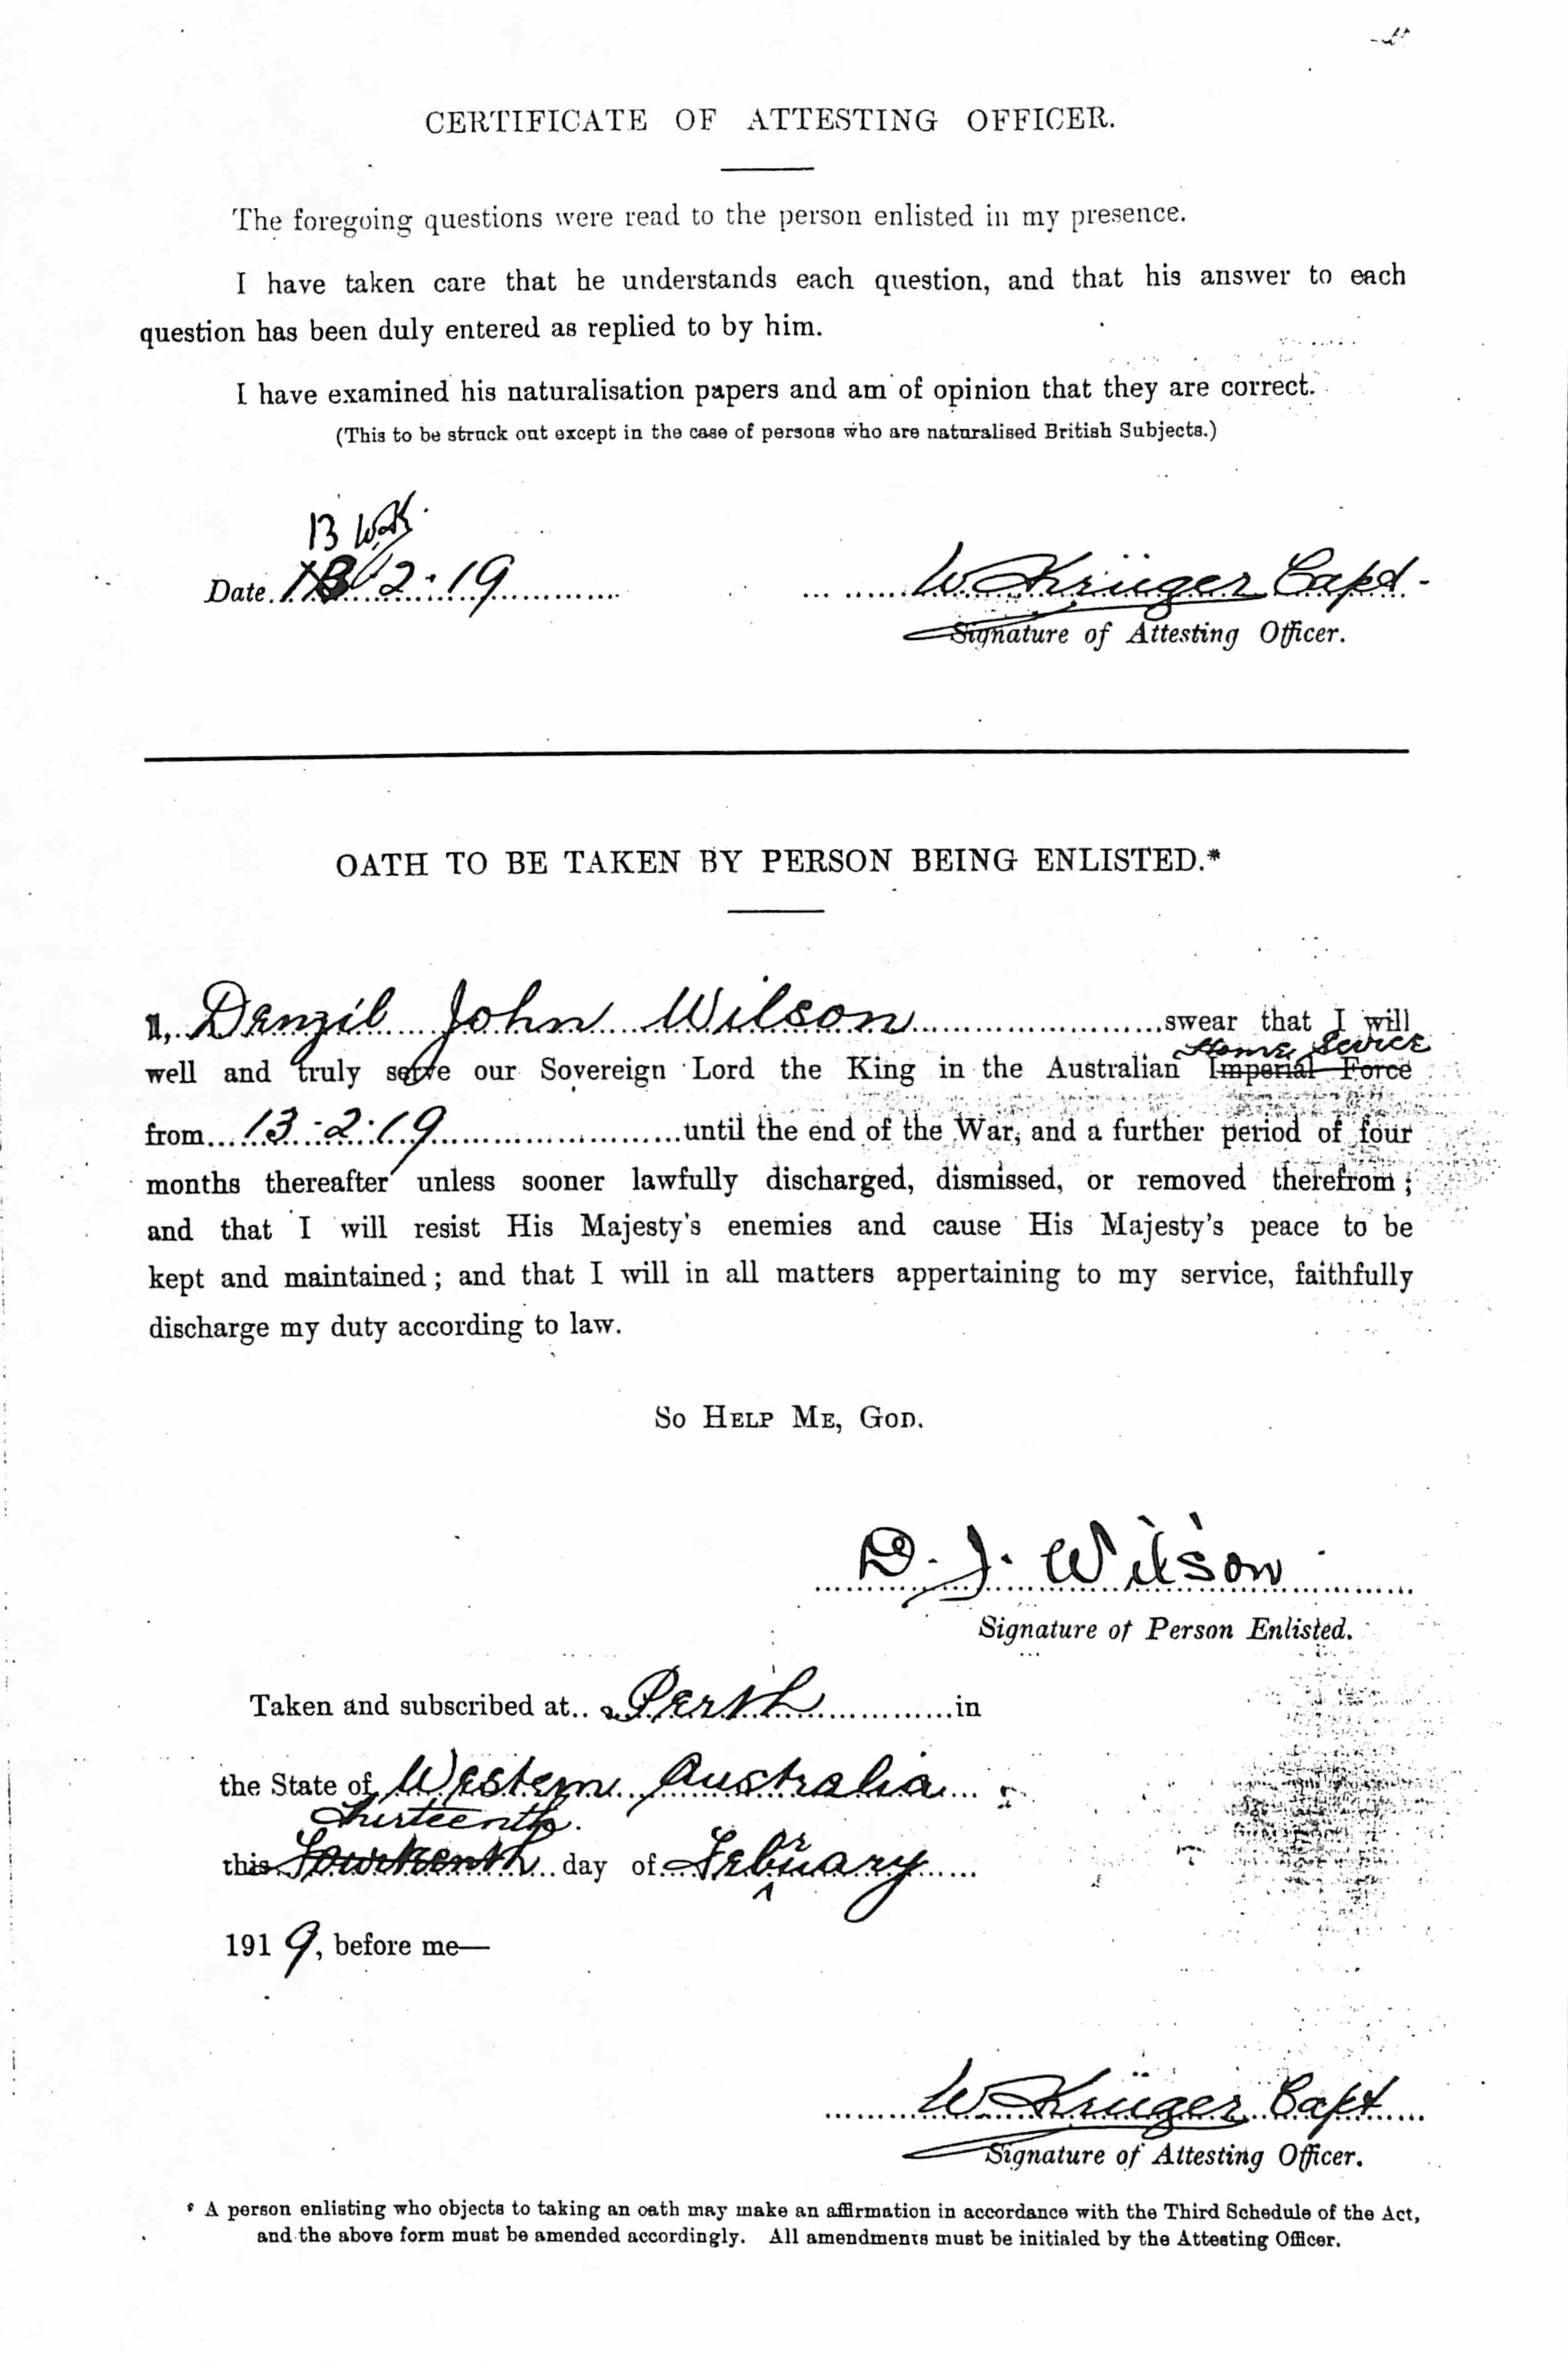 CERTIFICATE OF ATTESTING OFFICER.
The foregoing questions were read to the person enlisted in my presence.
I have taken care that he understands each question, and that his answer to each
question has been duly entered as replied to by him.
I have examined his naturalisation papers and am of opinion that they are correct.
(This to be struck out except in the case of persons who are naturalised British Subjects.)
13 W.K.
Date 13.2.19 W Krüger Capt.
Signature of Attesting Officer.
OATH TO BE TAKEN BY PERSON BEING ENLISTED.*
I, Denzil John Wilson swear that I will
Home Service
well and truly serve our Sovereign Lord the King in the Australian Imperial Force
from 13.2.19 until the end of the War, and a further period of four
months thereafter unless sooner lawfully discharged, dismissed, or removed therefrom;
and that I will resist His Majesty's enemies and cause His Majesty's peace to be
kept and maintained; and that I will in all matters appertaining to my service, faithfully
discharge my duty according to law.
SO HELP ME, GOD.
D. J. Wilson
Signature of Person Enlisted.
Taken and subscribed at Perth in
the State of Western Australia
Thirteenth.
this Fourteenth day of February
1919, before me—
W Krüger Capt
Signature of Attesting Officer.
* A person enlisting who objects to taking an oath may make an affirmation in accordance with the Third Schedule of the Act,
and the above form must be amended accordingly. All amendments must be initialed by the Attesting Officer.